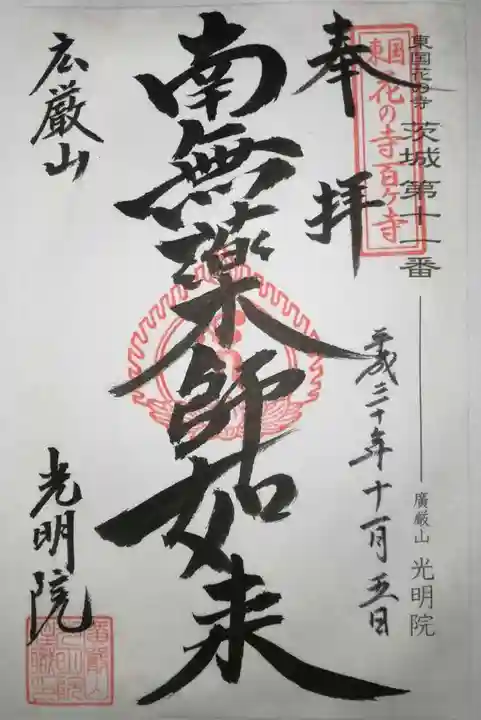 東国花の寺 茨城第十一番 ―― 廣厳山 光明院
東国
花の寺百ヶ寺
奉拝
平成三十年十一月五日
南無薬師如来
広厳山
光明院